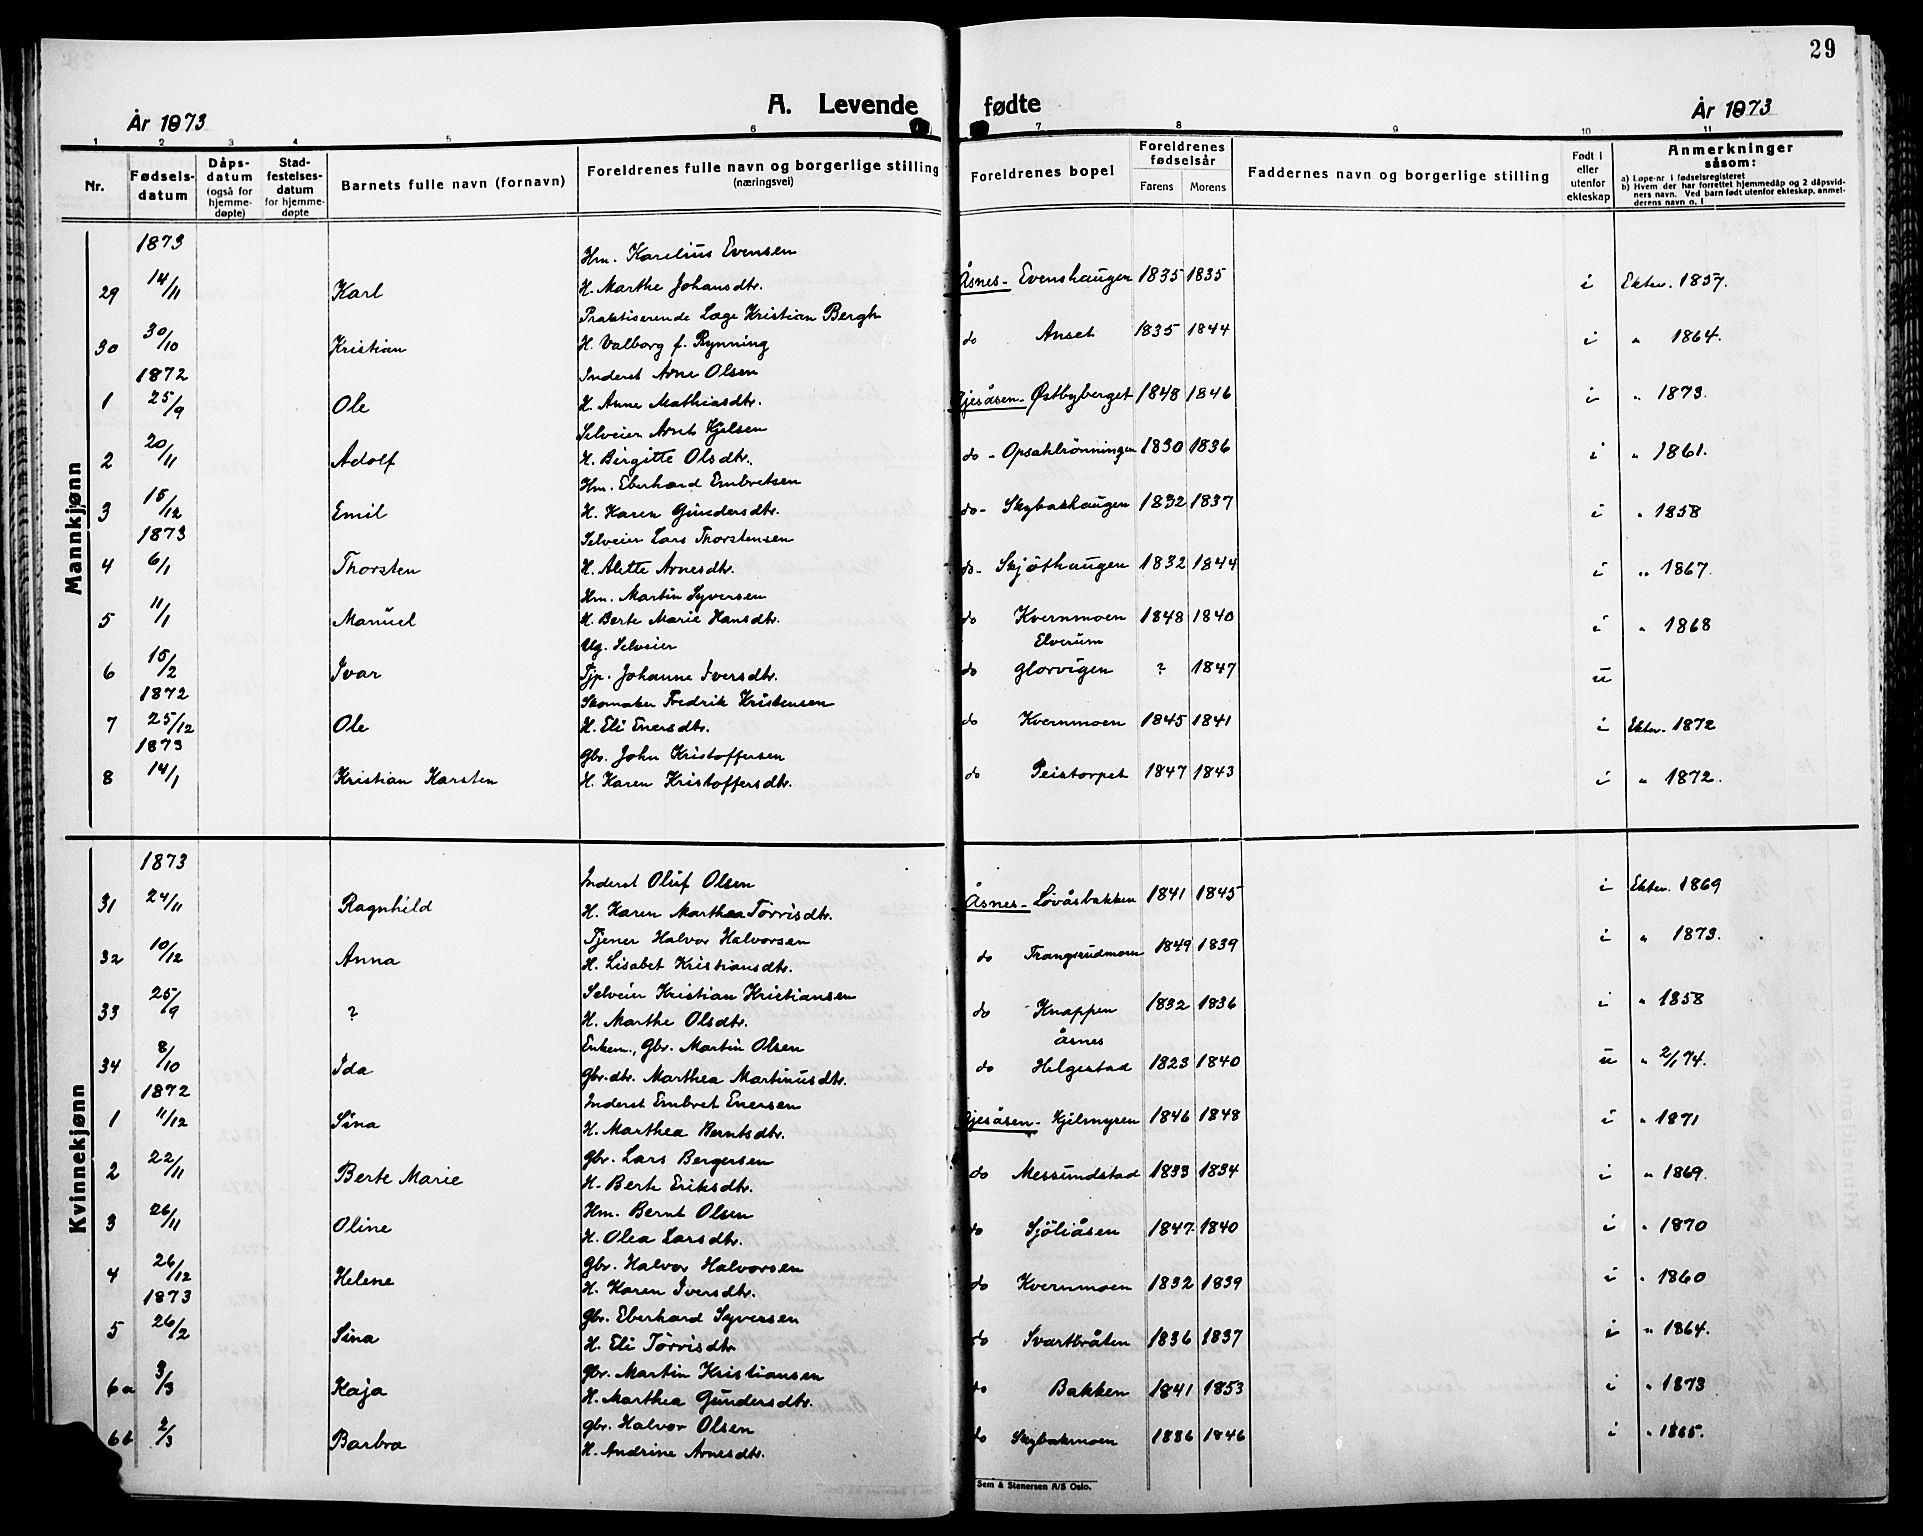 29
A. Levende fødte
År 1873 År 1873
1 2 3 4 5 6 7 8 9 10 11
Nr. Fødselsdatum Dåpsdatum (også for hjemmedøpte) Stadfestelsesdatum for hjemmedøpte Barnets fulle navn (fornavn) Foreldrenes fulle navn og borgerlige stilling (næringsvei) Foreldrenes bopel Foreldrenes fødselsår Farens Morens Faddernes navn og borgerlige stilling Født i eller utenfor ekteskap Anmerkninger såsom: a) Løpe-nr i fødselsregisteret b) Hvem der har forrettet hjemmedåp og 2 dåpsvidners navn. Ved barn født utenfor ekteskap, anmelderens navn o. l
Mannkjønn
1873 Hm. Karelius Evensen
29 14/11 Karl H. Marthe Johansdtr. Åsnes- Evenshaugen 1835 1835 i Ektev. 1857.
Praktiserende Læge Kristian Bergh
30 30/10 Kristian H. Valborg f. Rynning do Anset 1835 1844 i " 1864.
1872 Inderst Arne Olsen
1 25/9 Ole H. Anne Mathiasdtr. Gjesåsen- Østbyberget 1848 1846 i " 1873.
Selveier Arnt Kjelsen
2 20/11 Adolf H. Birgitte Olsdtr. do - Opsahlrönningen 1830 1836 i " 1861.
Hm. Eberhard Embretsen
3 15/12 Emil H. Karen Gundersdtr. do- Skybakhaugen 1832 1837 i " 1858
1873 Selveier Lars Thorstensen
4 6/1 Thorsten H. Alette Arnesdtr. do- Skjöthaugen 1832 1844 i " 1867.
Hm. Martin Syversen
5 11/1 Manuel H. Berte Marie Hansdtr. do Kvernmoen 1848 1840 i " 1868
Ug. Selveier Elverum
6 15/2 Ivar Tjp. Johanne Iversdtr. do Glorvigen ? 1847 u
1872 Skomaker Fredrik Kristensen
7 25/12 Ole H. Eli Enersdtr. do Kvernmoen 1845 1841 i Ektev. 1872
1873 Gbr. John Kristoffersen
8 14/1 Kristian Karsten H. Karen Kristoffersdtr. do Peistorpet 1847 1843 i " 1872.
Kvinnekjønn
1873 Inderst Oluf Olsen
31 24/11 Ragnhild H. Karen Marthea Torrisdtr. Åsnes- Lövåsbakken 1841 1845 i Ektev. 1869
Tjener Halvor Halvorsen
32 10/12 Anna H. Lisabet Kristiansdtr. do Trangsrudmoen 1849 1839 i " 1873.
Selveier Kristian Kristiansen
33 25/9 ? H. Marthe Olsdtr. do Knappen 1832 1836 i " 1858
Enkem., Gbr. Martin Olsen Åsnes
34 8/10 Ida Gbr.dtr. Marthea Martinusdtr. do Helgestad 1823 1840 u " 2/1 74.
1872 Inderst Embret Enersen
1 11/12 Sina H. Marthea Berntsdtr. Gjesåsen- Kjelmyren 1846 1848 i " 1871
Gbr. Lars Bergersen
2 22/11 Berte Marie H. Berte Eriksdtr. do Messundstad 1833 1834 i " 1869.
Hm. Bernt Olsen
3 26/11 Oline H. Olea Larsdtr. do Sjöliåsen 1847 1840 i " 1870
Gbr. Halvor Halvorsen
4 26/12 Helene H. Karen Iversdtr. do Kvernmoen 1832 1839 i " 1860
1873 Gbr. Eberhard Syversen
5 26/2 Sina H. Eli Torrisdtr do Svartbråten 1836 1837 i " 1864.
Gbr. Martin Kristiansen
6a 3/3 Kaja H. Marthea Gundersdtr. do Bakken 1841 1853 i " 1873
Gbr. Halvor Olsen
6b 2/3 Barbra H. Andrine Arnesdtr. do Skybakmoen 1836 1846 i " 1865.
Sem & Stenersen A/S Oslo.